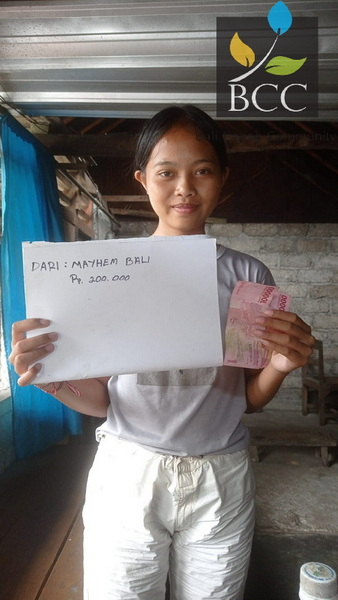 BCC
DARI : MAYHEM BALI
Rp. 200.000
100000